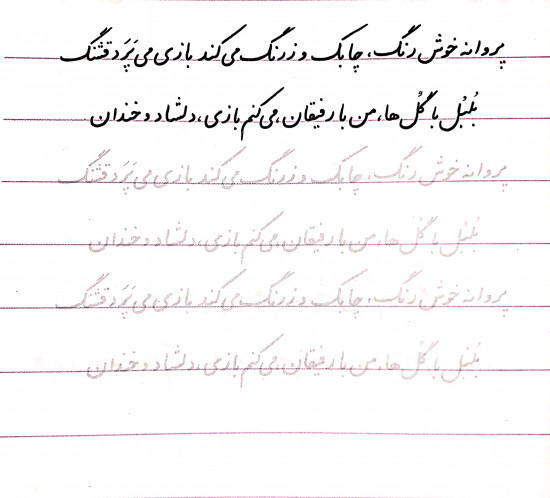 پروانه خوش رنگ، چابک و زرنگ می کند بازی می پَرَد قشنگ
بُلبُل با گُل ها، من با رفیقان، می کنم بازی، دلشاد و خندان
پروانه خوش رنگ، چابک و زرنگ می کند بازی می پَرَد قشنگ
بُلبُل با گُل ها، من با رفیقان، می کنم بازی، دلشاد و خندان
پروانه خوش رنگ، چابک و زرنگ می کند بازی می پَرَد قشنگ
بُلبُل با گُل ها، من با رفیقان، می کنم بازی، دلشاد و خندان